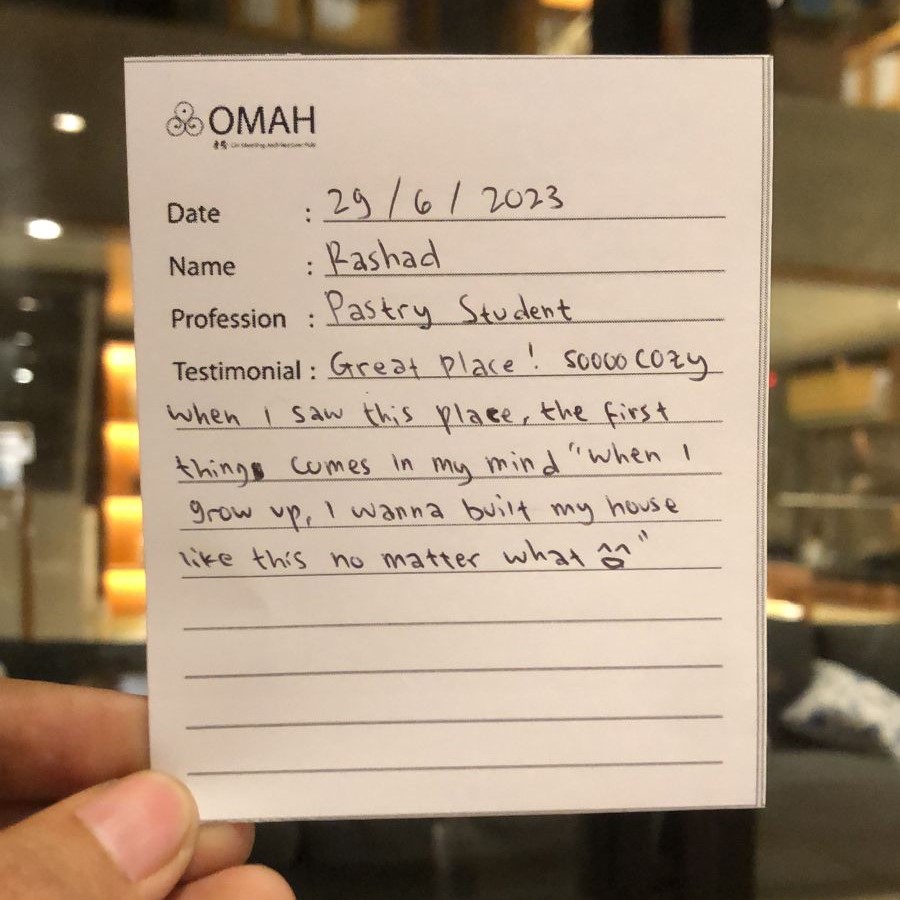 OMAH
Date : 29 / 6 / 2023
Name : Rashad
Profession : Pastry Student
Testimonial : Great place! soooo cozy
when I saw this place, the first
things comes in my mind "when I
grow up, I wanna built my house
like this no matter what ^o^"